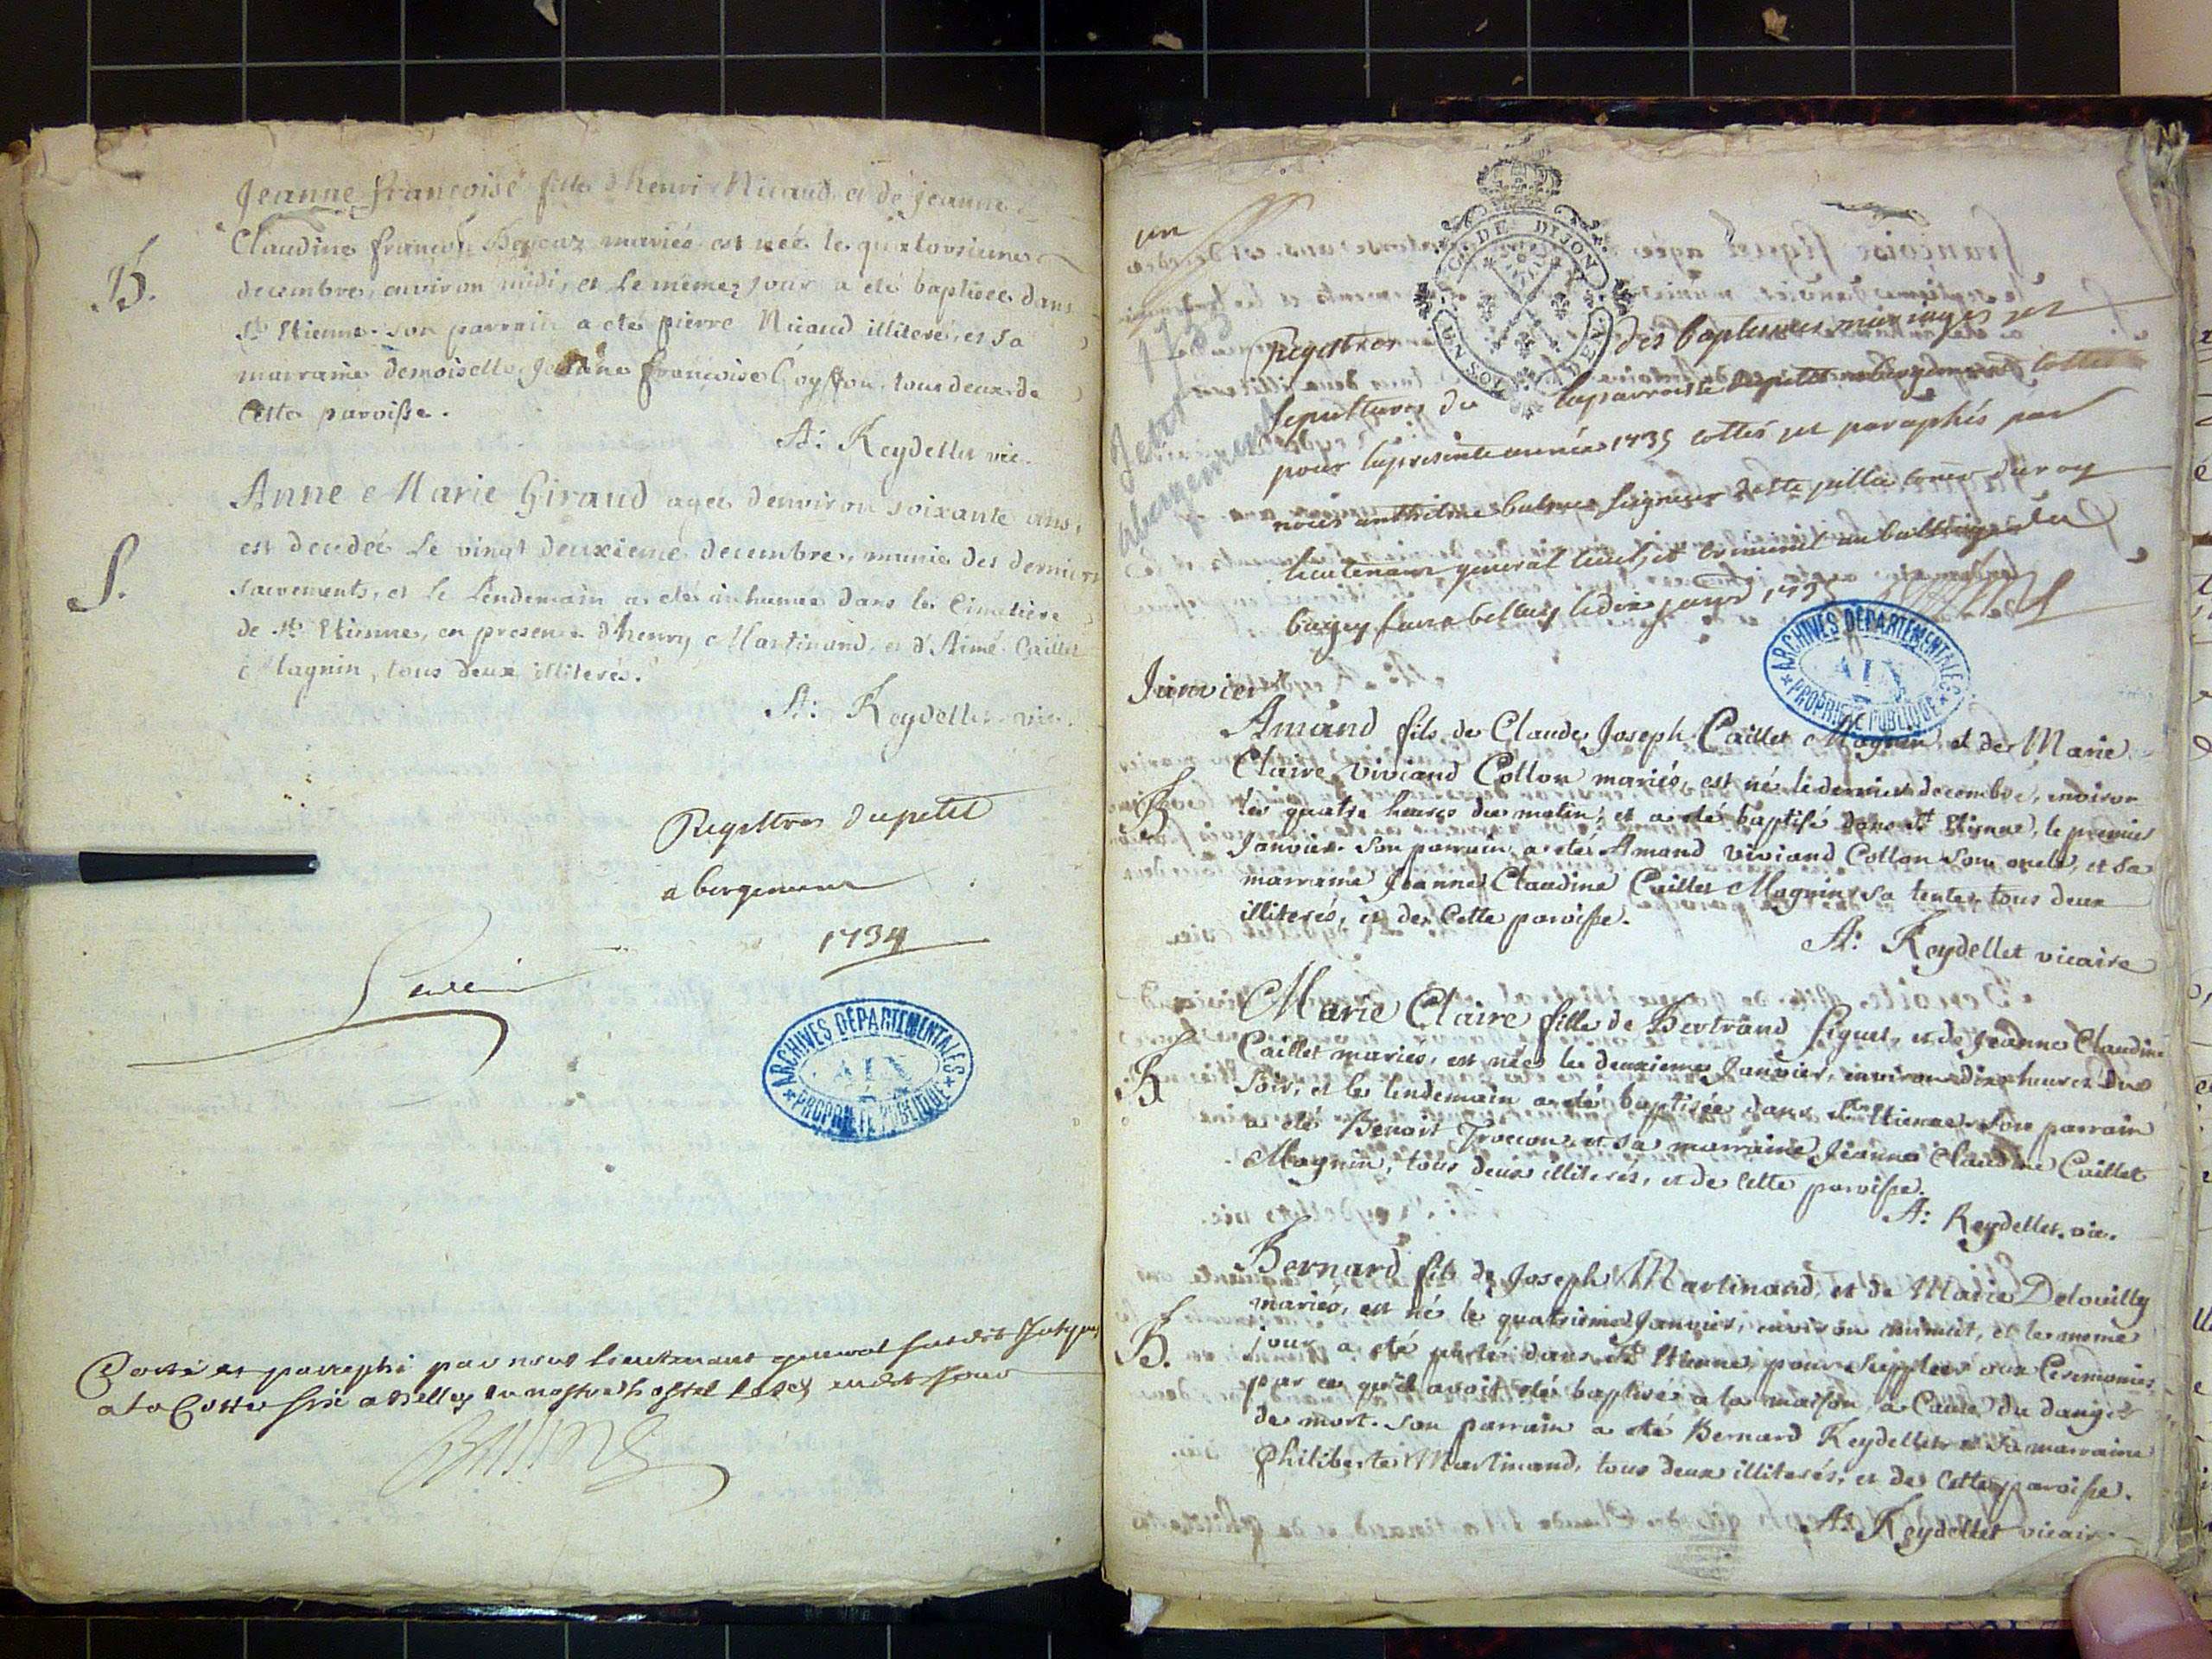 Jeanne françoise fille d'henri Nicaud et de jeanne
Claudine françoise mariés est née le quatorsieme
decembre, environ midi, et le même jour a eté baptisée dans
St. Etienne. son parrain a eté pierre Nicaud illiteré, et sa
marraine demoiselle françoise Goyffon, tous deux de
cette paroisse.
B.
A: Reydellet vic.
Anne Marie Giraud agée d'environ soixante ans,
est decedée le vingt deuxieme decembre, munie des derniers
sacrements, et le lendemain a eté inhumée dans le Cimetière
de St. Etienne, en presence d'henry Martinand, et d'Aimé Caillet
Magnin, tous deux illiterés.
S.
A: Reydellet vic.
Registres du petit
abergement
1734
Cotté et paraphé par nous lieutenant general susdit
a la Cotte six a Belley en nostre hostel lesd. an et jour
un
1735
petit
abergement
G. DE DIJON
Registres des baptemes mariages et
sepultures de la parroisse du petit abergement cottes
pour la presente année 1735 cottés et paraphés par
nous anthelme balme seigneur de Ste jullie coner du roy
lieutenant general civil, et criminel au bailliage du
bugey seant a belley le dix janv 1735
ARCHIVES DÉPARTEMENTALES
AIN
PROPRIÉTÉ PUBLIQUE
Janvier
Amand fils de Claude Joseph Caillet Magnin et de Marie
Claire Viviand Collon mariés, est né le dernier decembre, environ
les quatre heures du matin, et a eté baptisé dans St Etienne, le premier
Janvier. Son parrain a eté Amand Viviand Collon son oncle, et sa
marraine Jeanne Claudine Caillet Magnin sa tente, tous deux
illiterés, et de cette paroisse.
B
A: Reydellet vicaire
Marie Claire fille de Bertrand figuet, et de Jeanne Claudine
Caillet mariés, est née le deuxieme Janvier, environ dix heures du
soir, et le lendemain a eté baptisée dans St Etienne. Son parrain
a eté Benoit Troccon, et sa marraine Jeanne Claudine Caillet
Magnin, tous deux illiterés, et de cette paroisse.
B
A: Reydellet. vic.
Bernard fils de Joseph Martinand, et de Marie Delouilly
mariés, est né le quatrieme Janvier, environ minuit, et le meme
jour a eté porté dans St Etienne, pour suppleer aux Ceremonies
par ce qu'il avoit eté baptisé a la maison, a Cause du danger
de mort. Son parrain a eté Bernard Reydellet et sa marraine
philiberte Martinand, tous deux illiterés, et de cette paroisse.
B.
A: Reydellet vicaire
ARCHIVES DÉPARTEMENTALES
AIN
PROPRIÉTÉ PUBLIQUE